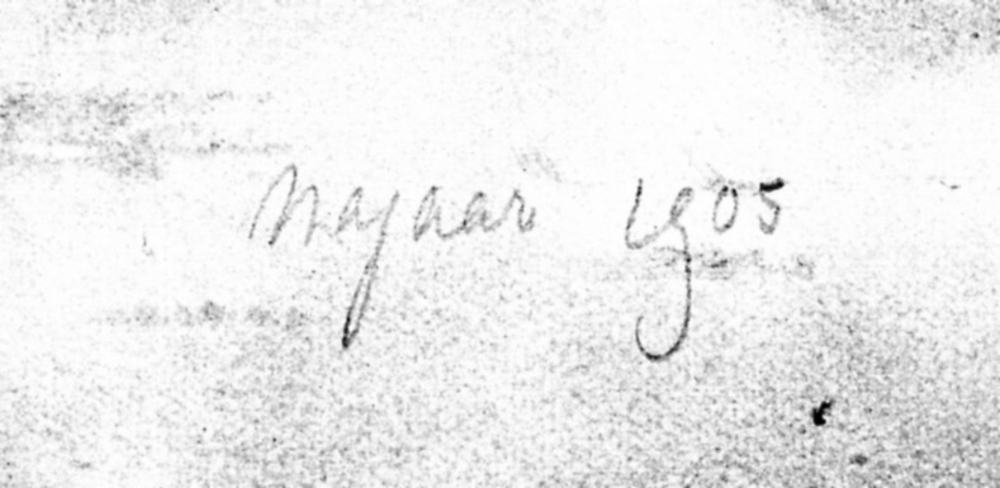 Najaar 1905